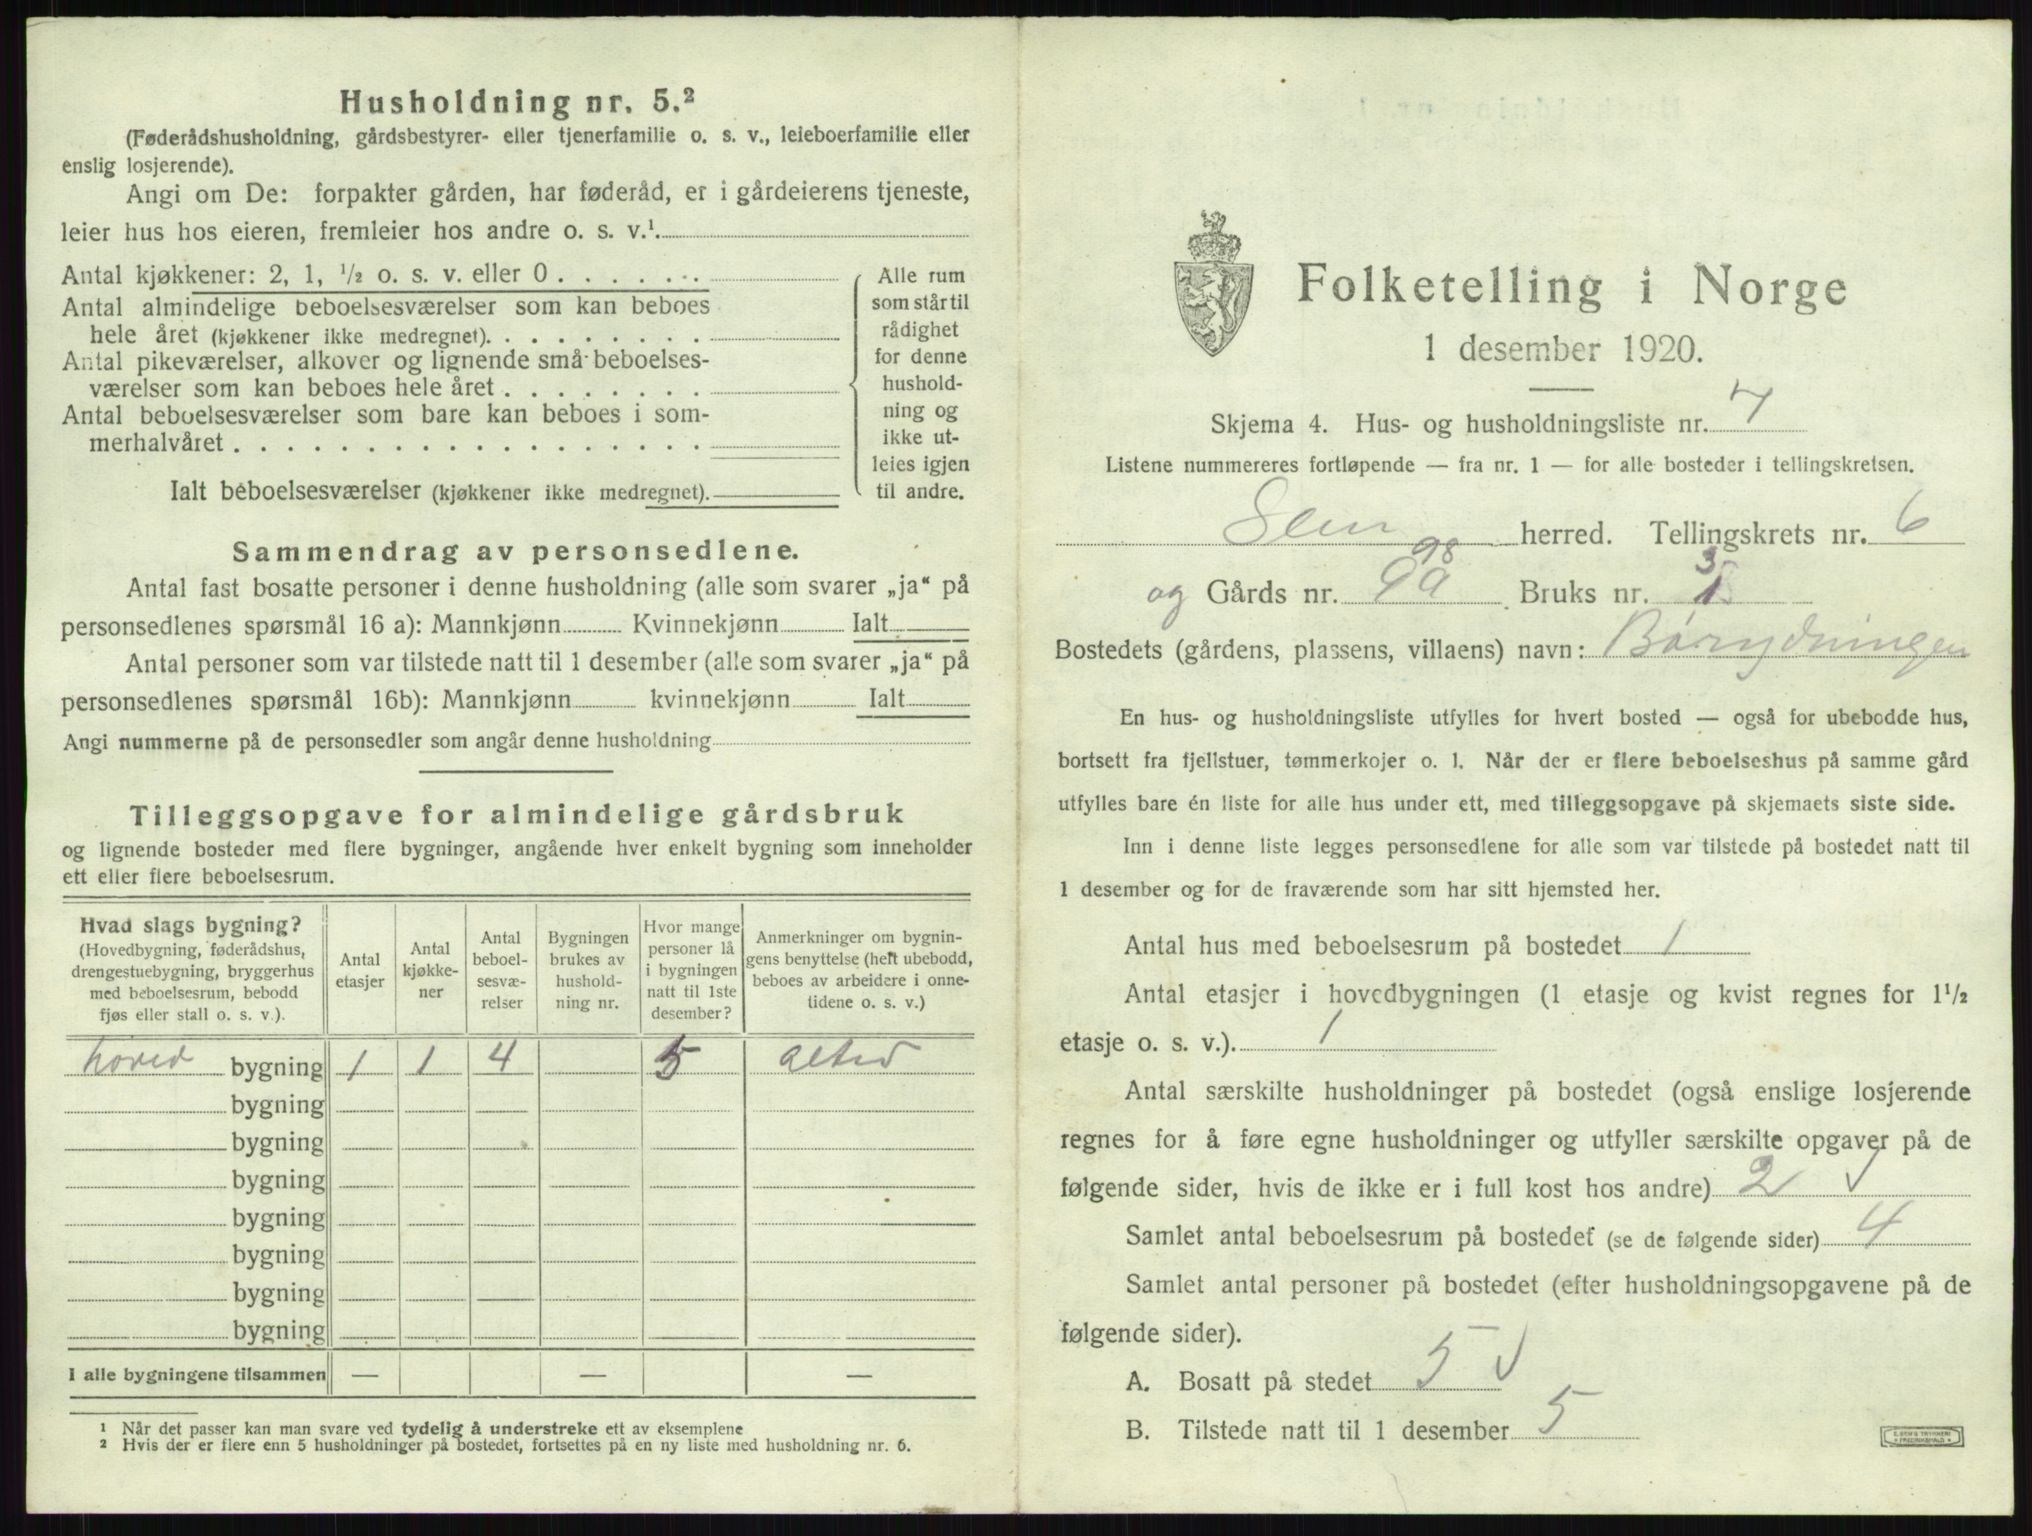 Husholdning nr. 5.²
(Føderådshusholdning, gårdsbestyrer- eller tjenerfamilie o. s. v., leieboerfamilie eller
enslig losjerende).
Angi om De: forpakter gården, har føderåd, er i gårdeierens tjeneste,
leier hus hos eieren, fremleier hos andre o. s. v.¹
Antal kjøkkener: 2, 1, ½ o. s. v. eller 0 . . . . . .
Antal almindelige beboelsesværelser som kan beboes
hele året (kjøkkener ikke medregnet). . . . . . . . .
Antal pikeværelser, alkover og lignende små beboelses-
værelser som kan beboes hele året . . . . . . . .
Antal beboelsesværelser som bare kan beboes i som-
merhalvåret . . . . . . . . . . . . . . . . . .
Ialt beboelsesværelser (kjøkkener ikke medregnet).
Alle rum
som står til
rådighet
for denne
hushold-
ning og
ikke ut-
leies igjen
til andre.
Sammendrag av personsedlene.
Antal fast bosatte personer i denne husholdning (alle som svarer „ja“ på
personsedlenes spørsmål 16 a): Mannkjønn Kvinnekjønn Ialt
Antal personer som var tilstede natt til 1 desember (alle som svarer „ja“ på
personsedlenes spørsmål 16b): Mannkjønn kvinnekjønn Ialt
Angi nummerne på de personsedler som angår denne husholdning
Tilleggsopgave for almindelige gårdsbruk
og lignende bosteder med flere bygninger, angående hver enkelt bygning som inneholder
ett eller flere beboelsesrum.
Hvad slags bygning?
(Hovedbygning, føderådshus,
drengestuebygning, bryggerhus
med beboelsesrum, bebodd
fjøs eller stall o. s. v.).
Antal
etasjer
Antal
kjøkke-
ner
Antal
beboel-
sesvæ-
relser
Bygningen
brukes av
hushold-
ning nr.
Hvor mange
personer lå
i bygningen
natt til 1ste
desember?
Anmerkninger om bygnin-
gens benyttelse (helt ubebodd,
beboes av arbeidere i onne-
tidene o. s. v.)
hoved bygning 1 1 4 5 altid
bygning
bygning
bygning
bygning
bygning
bygning
bygning
I alle bygningene tilsammen — — —
¹ Når det passer kan man svare ved tydelig å understreke ett av eksemplene
² Hvis der er flere enn 5 husholdninger på bostedet, fortsettes på en ny liste med husholdning nr. 6.
Folketelling i Norge
1 desember 1920.
Skjema 4. Hus- og husholdningsliste nr. 7
Listene nummereres fortløpende — fra nr. 1 — for alle bosteder i tellingskretsen.
Sem herred. Tellingskrets nr. 6
98 3
og Gårds nr. 99 Bruks nr. 1
Bostedets (gårdens, plassens, villaens) navn: Børydningen
En hus- og husholdningsliste utfylles for hvert bosted — også for ubebodde hus,
bortsett fra fjellstuer, tømmerkojer o. l. Når der er flere beboelseshus på samme gård
utfylles bare én liste for alle hus under ett, med tilleggsopgave på skjemaets siste side.
Inn i denne liste legges personsedlene for alle som var tilstede på bostedet natt til
1 desember og for de fraværende som har sitt hjemsted her.
Antal hus med beboelsesrum på bostedet 1
Antal etasjer i hovedbygningen (1 etasje og kvist regnes for 1½
etasje o. s. v.). 1
Antal særskilte husholdninger på bostedet (også enslige losjerende
regnes for å føre egne husholdninger og utfyller særskilte opgaver på de
følgende sider, hvis de ikke er i full kost hos andre) 2 √
Samlet antal beboelsesrum på bostedet (se de følgende sider) 4
Samlet antal personer på bostedet (efter husholdningsopgavene på de
følgende sider).
A. Bosatt på stedet 5 √
B. Tilstede natt til 1 desember 5